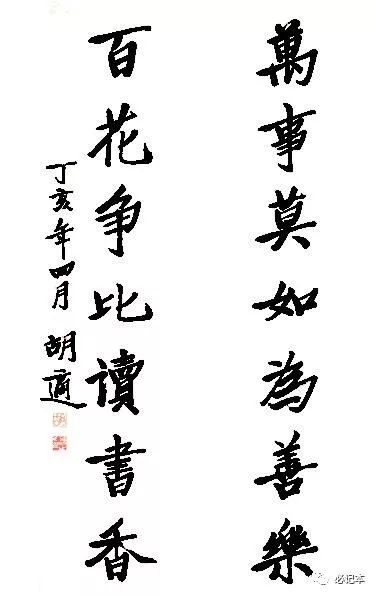 萬事莫如為善樂
百花争比讀書香
丁亥年四月 胡適
必记本